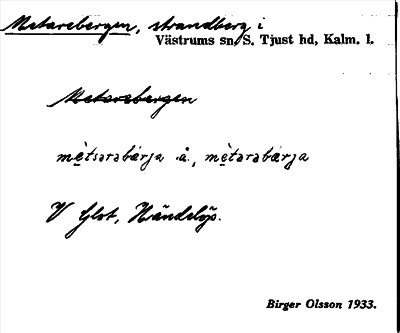 Metarebergen, strandberg i
Västrums sn, S. Tjust hd, Kalm. l.
Metarebergen
mètsarabærja å., mètarabærja
V Glot, Händelöp.
Birger Olsson 1933.